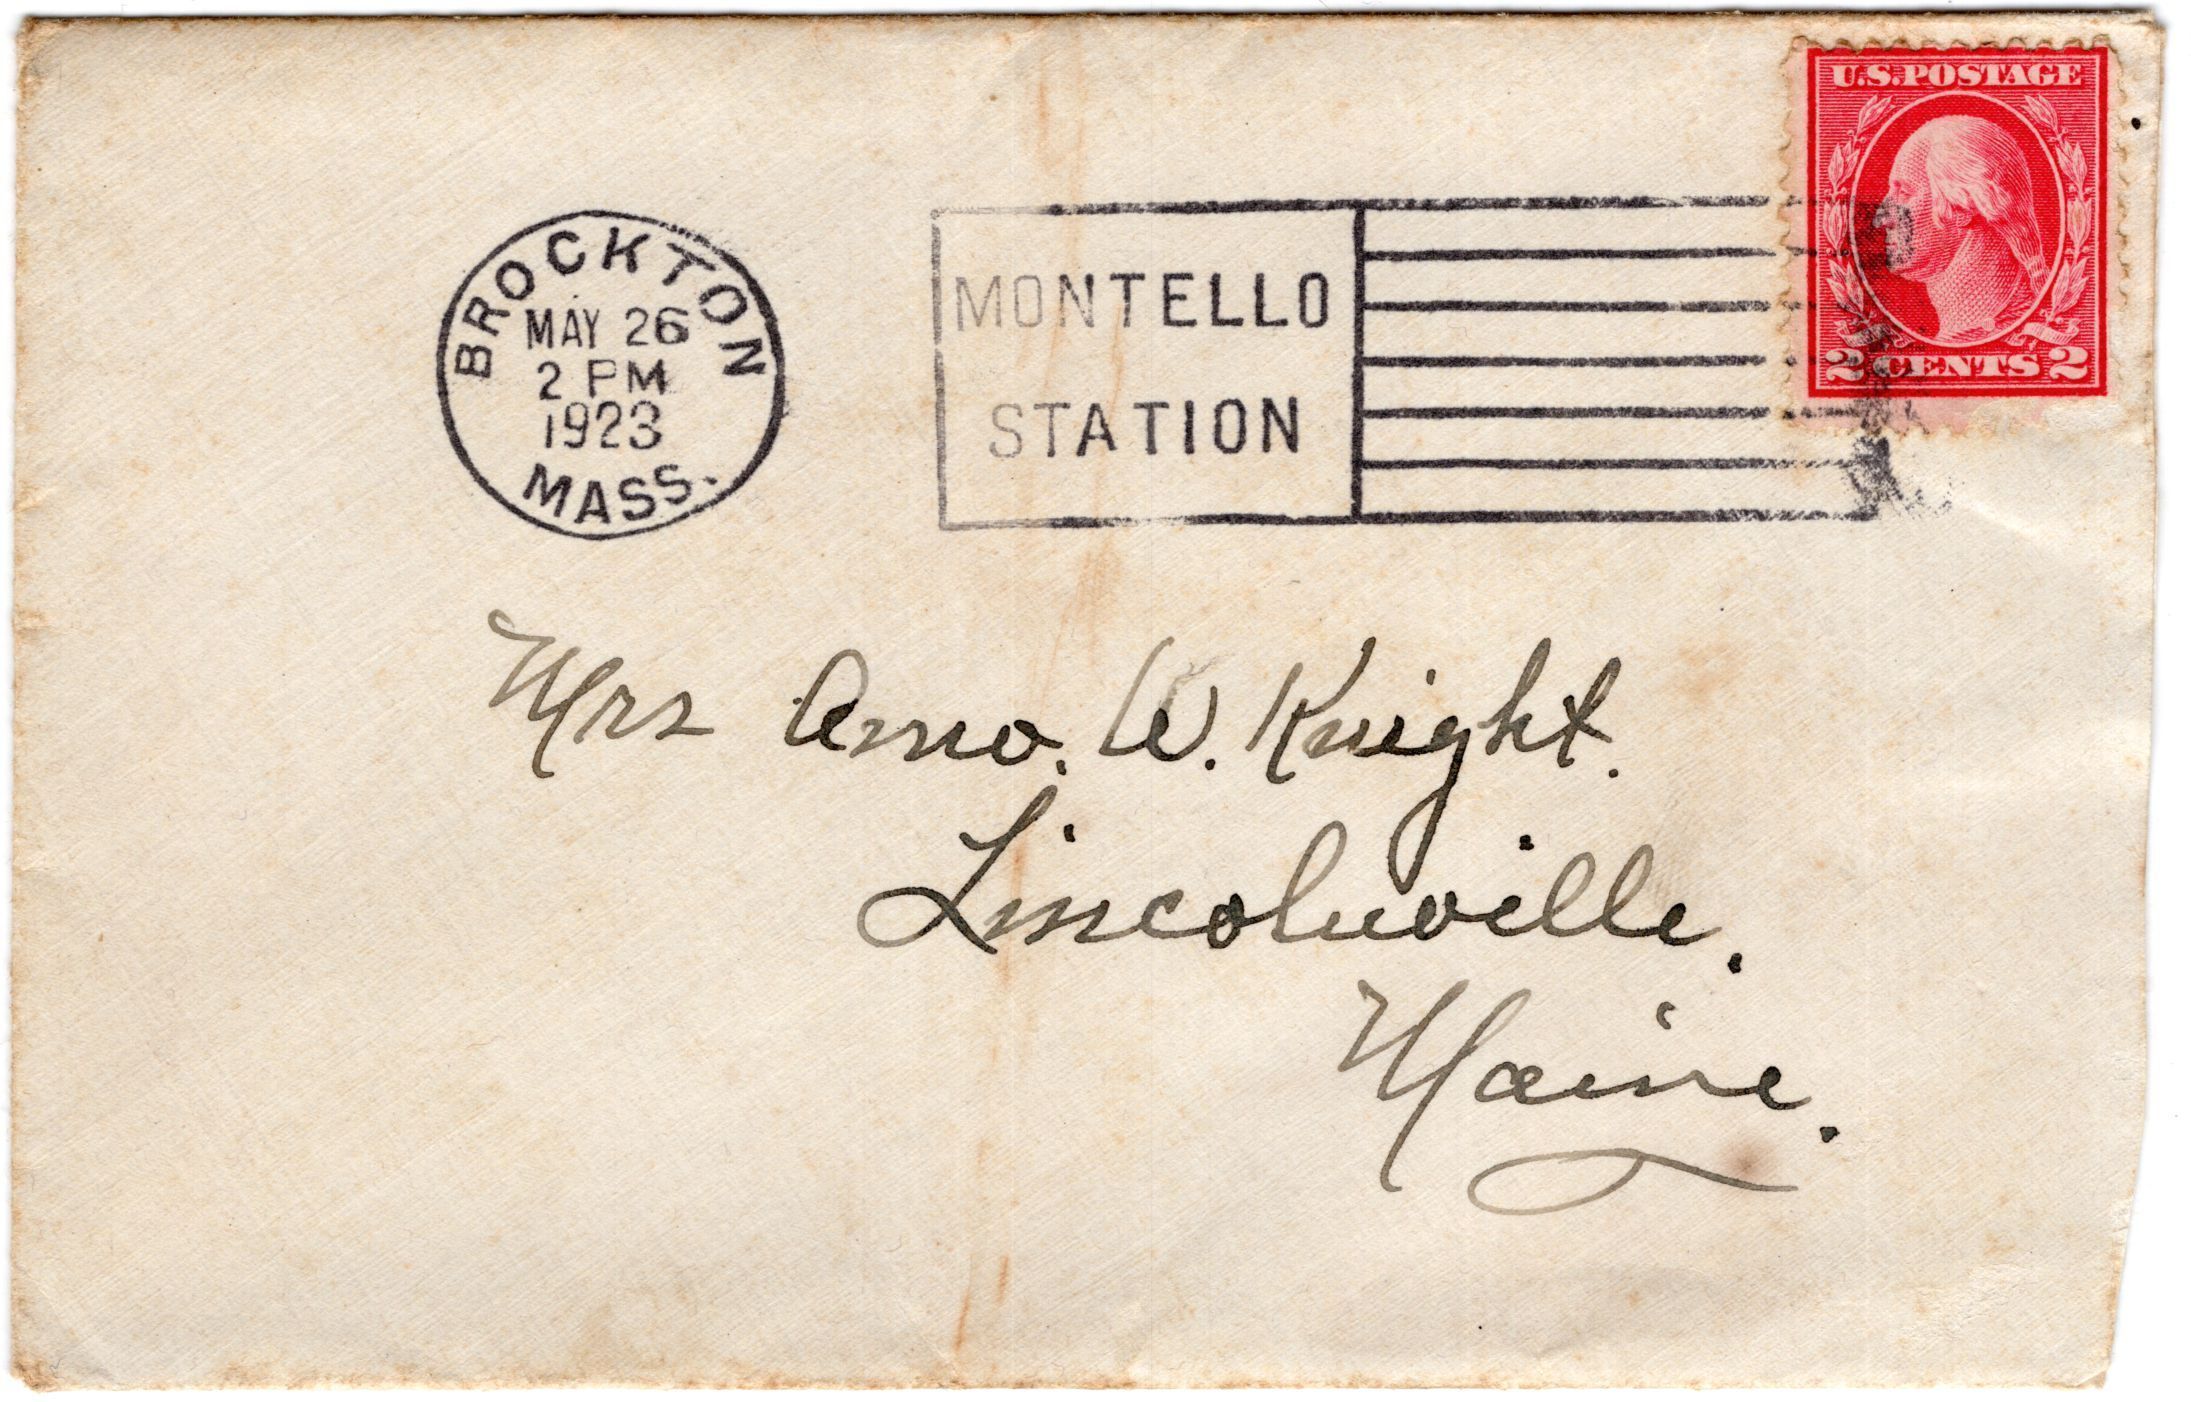 U.S. POSTAGE
2 CENTS 2
BROCKTON
MAY 26
2 PM
1923
MASS.
MONTELLO
STATION
Mrs Amo. W. Knight.
Lincolnville.
Maine.